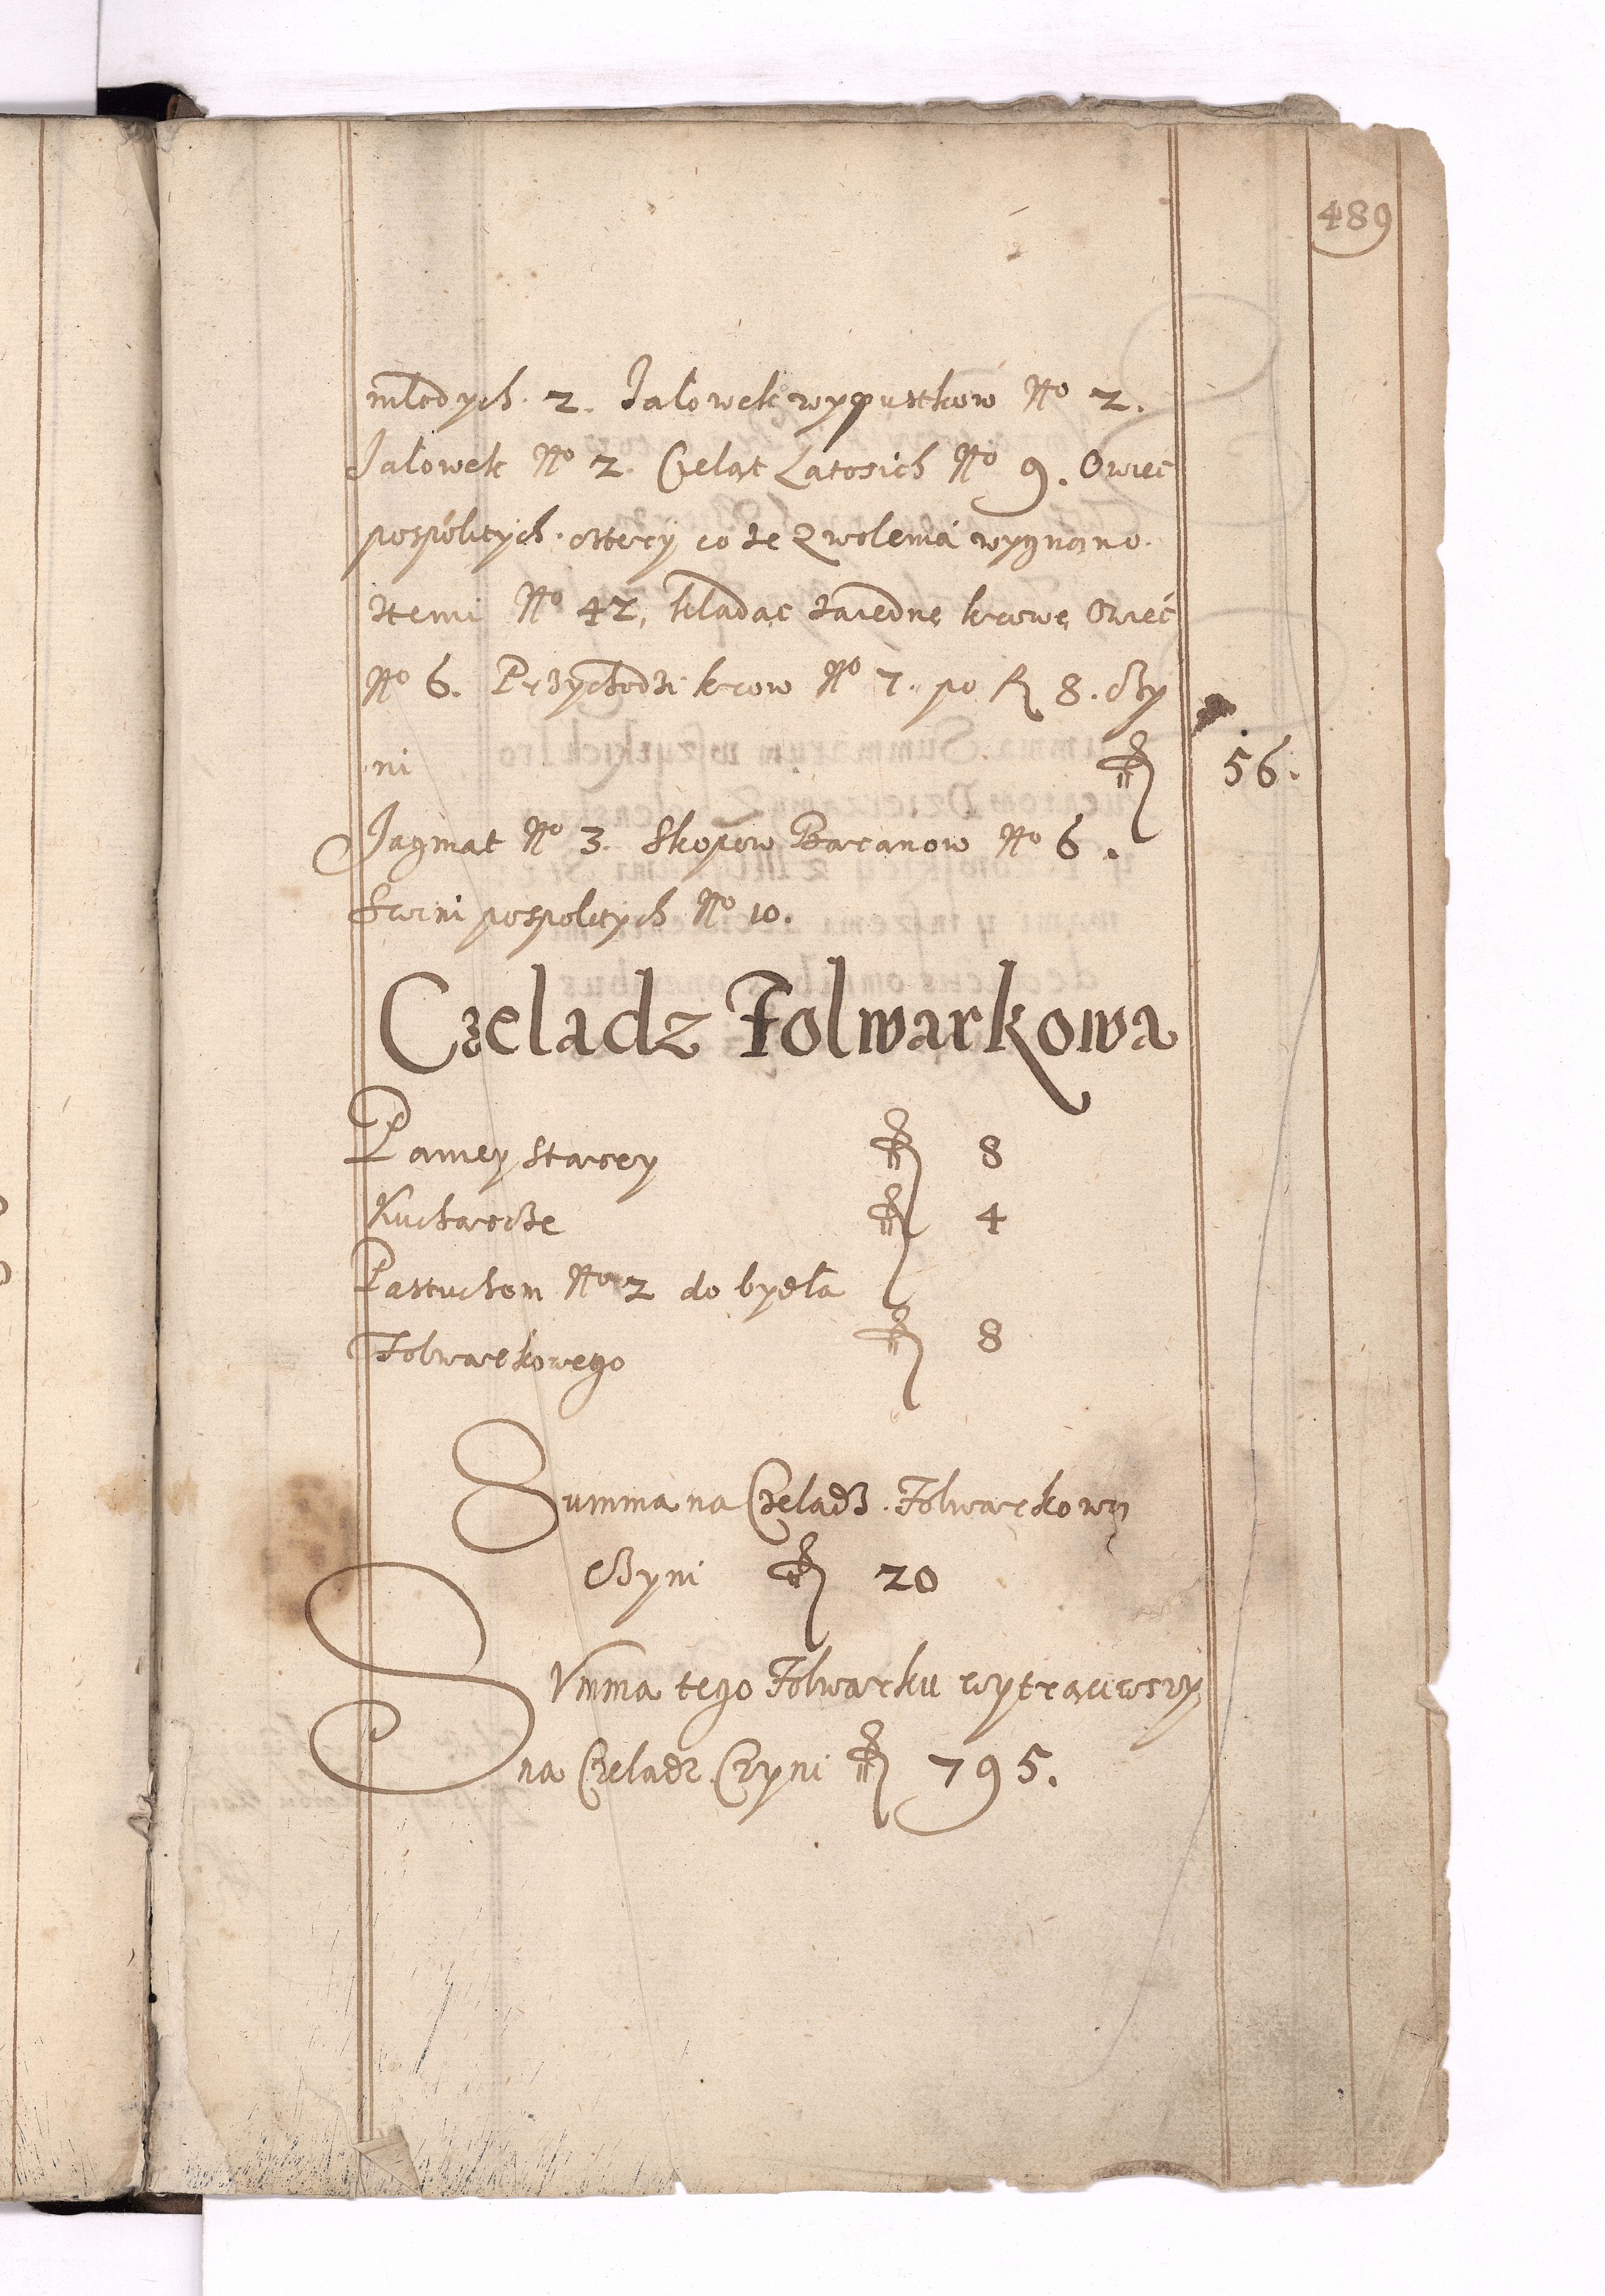 489
młodych. 2. Jałowek wypustkow No 2.
Jalowek No 2. Cieląt Latosich No 9. Owiec
pospolitych. cztery co ze Zwolenia wygnano.
Item No 42, kladąc za iednę krowę Owiec
No 6. Przychodzi krow No 7. po fl 8. czy
ni fl 56.
Jagniat No 3. Skopow Baranow No 6.
Swini pospolitych No 10.
Czeladz Folwarkowa
Paniey Starey fl 8
Kucharcze fl 4
Pastuchom No 2 do bydła
Folwarkowego fl 8
Summa na Czeladz Folwarkową
czyni fl 20
SVmma tego Folwarku wytrąciwszy
na Czeladz Czyni fl 795.